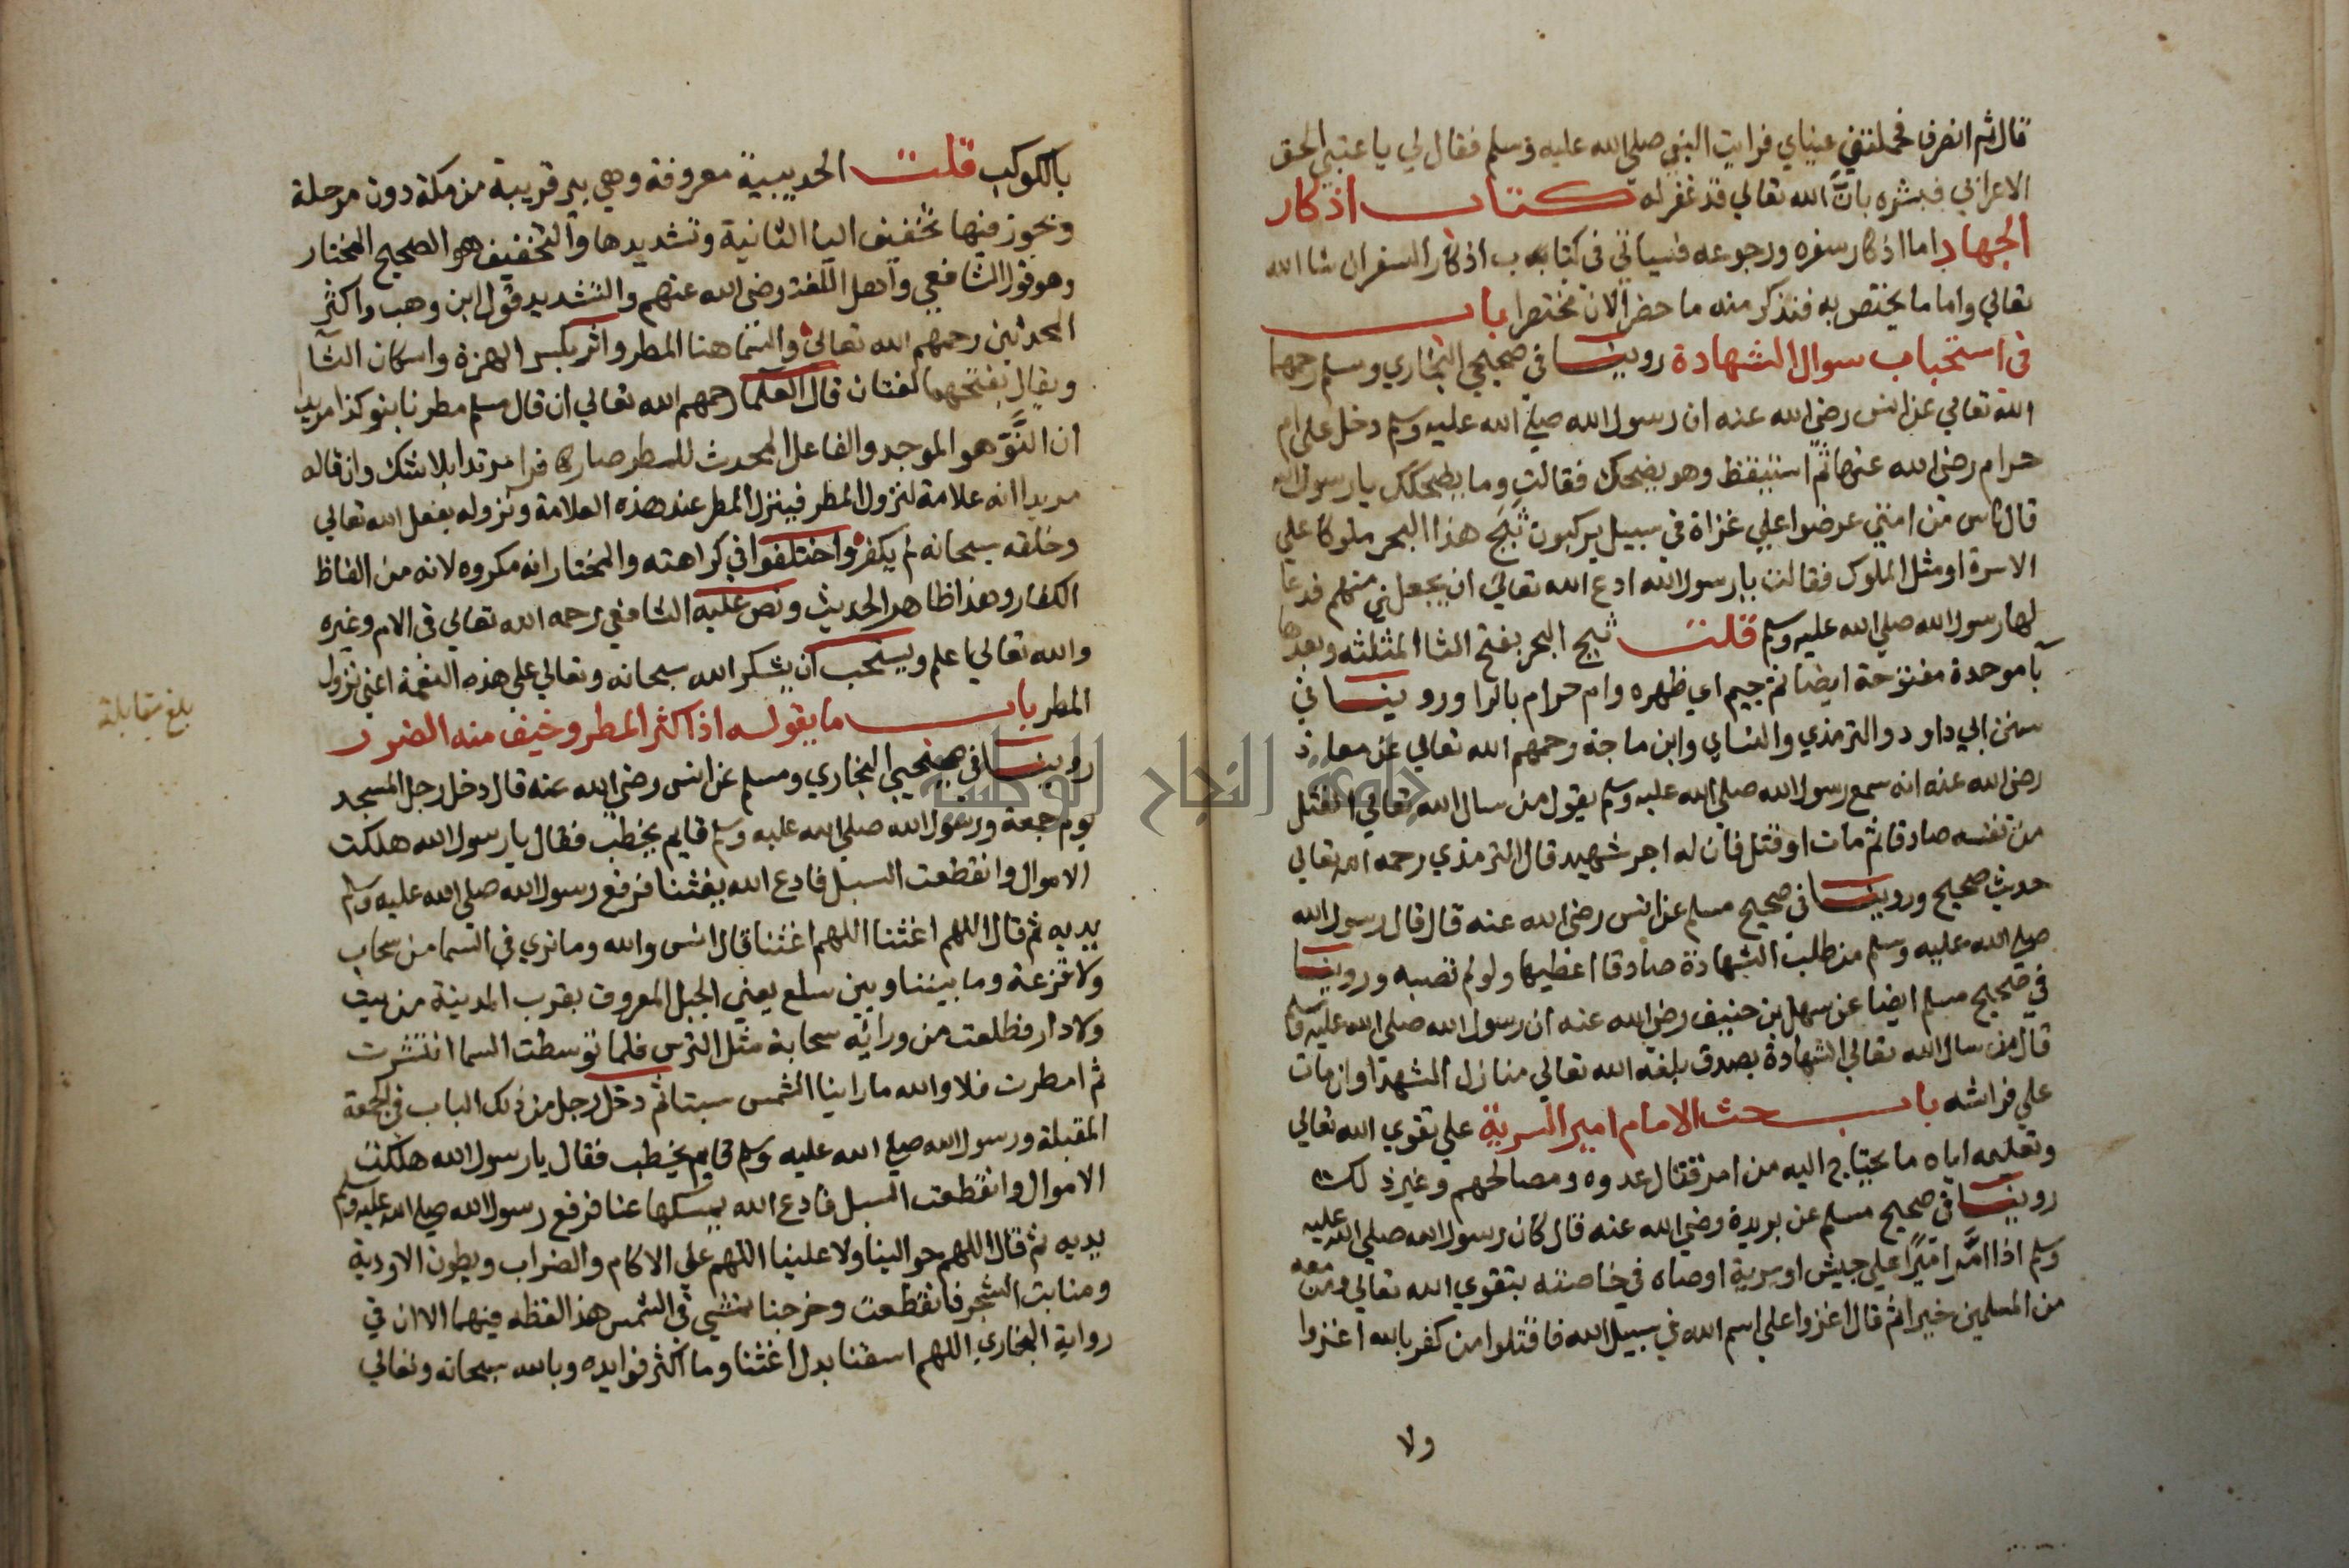 قال ثم انصرف فحملتني عيناي فرايت النبي صلي الله عليه وسلم فقال لي يا عتبي الحق
الاعرابي فبشره بان الله تعالي قد غفر له كتاب اذكار
الجهاد اما اذكار سفره ورجوعه فسياتي في كتاب اذكار السفر ان شا الله
تعالي واما ما يختص به فنذكر منه ما حضر الان مختصرا باب
في استحباب سوال الشهادة روينا في صحيحي البخاري ومسلم رحمهما
الله تعالي عن انس رضي الله عنه ان رسول الله صلي الله عليه وسلم دخل علي ام
حرام رضي الله عنها ثم استيقظ وهو يضحك فقالت وما يضحكك يا رسول الله
قال ناس من امتي عرضوا علي غزاة في سبيل يركبون ثبج هذا البحر ملوكا علي
الاسرة او مثل الملوك فقالت يا رسول الله ادع الله تعالي ان يجعلني منهم فدعا
لها رسول الله صلي الله عليه وسلم قلت ثبج البحر بفتح الثا المثلثه وبعدها
با موحدة مفتوحة ايضا ثم جيم اي ظهره وام حرام بالرا وروينا في
سنن ابي داود والترمذي والنساي وابن ماجة رحمهم الله تعالي عن معاذ
رضي الله عنه انه سمع رسول الله صلي الله عليه وسلم يقول من سال الله تعالي القتل
من نفسه صادقا ثم مات او قتل فان له اجر شهيد قال الترمذي رحمه الله تعالي
حديث صحيح وروينا في صحيح مسلم عن انس رضي الله عنه قال قال رسول الله
صلي الله عليه وسلم من طلب الشهادة صادقا اعطيها ولو لم تصبه وروينا
في صحيح مسلم ايضا عن سهل بن حنيف رضي الله عنه ان رسول الله صلي الله عليه وسلم
قال من سال الله تعالي الشهادة بصدق بلغه الله تعالي منازل الشهدا وان مات
علي فراشه باب حث الامام امير السرية علي تقوي الله تعالي
وتعليمه اياه ما يحتاج اليه من امر قتال عدوه ومصالحهم وغير ذلك
روينا في صحيح مسلم عن بريدة رضي الله عنه قال كان رسول الله صلي الله عليه
وسلم اذا امر اميرا علي جيش او سرية اوصاه في خاصته بتقوي الله تعالي ومن معه
من المسلمين خيرا ثم قال اغزوا علي اسم الله في سبيل الله فاقتلوا من كفر بالله اغزوا
ولا
بالكوكب قلت الحديبية معروفة وهي بير قريبة من مكة دون مرحلة
ونجوز فيها تخفيف اليا الثانية وتشديدها والتخفيف هو الصحيح المختار
وهو قول الشافعي واهل اللغة رضي الله عنهم والتشديد قول ابن وهب واكثر
المحدثين رحمهم الله تعالي والسما هنا المطر واثر بكسر الهمزة واسكان الثا
ويقال بفتحهما لغتان قال العلما رحمهم الله تعالي ان قال مسلم مطرنا بنو كذا مريدا
ان النو هو الموجد والفاعل المحدث للمطر صار كافرا مرتدا بلا شك وان قاله
مريدا انه علامة لنزول المطر فينزل المطر عند هذه العلامة ونزوله بفعل الله تعالي
وخلقه سبحانه لم يكفر واختلفوا في كراهته والمختار انه مكروه لانه من الفاظ
الكفار وهذا ظاهر الحديث ونص عليه الشافعي رحمه الله تعالي في الام وغيره
والله تعالي اعلم ويستحب ان يشكر الله سبحانه وتعالي علي هذه النعمة اعني نزول
المطر باب ما يقوله اذا كثر المطر وخيف منه الضرر
روينا في صحيحي البخاري ومسلم عن انس رضي الله عنه قال دخل رجل المسجد
يوم جمعة ورسول الله صلي الله عليه وسلم قايم يخطب فقال يا رسول الله هلكت
الاموال وانقطعت السبل فادع الله يغثنا فرفع رسول الله صلي الله عليه وسلم
يديه ثم قال اللهم اغثنا اللهم اغثنا قال انس والله وما نري في السما من سحاب
ولا قزعة وما بيننا وبين سلع يعني الجبل المعروف بقرب المدينة من بيت
ولا دار فطلعت من ورائه سحابة مثل الترس فلما توسطت السما انتشرت
ثم امطرت فلا والله ما راينا الشمس سبتا ثم دخل رجل من ذلك الباب في الجمعة
المقبلة ورسول الله صلي الله عليه وسلم قايم يخطب فقال يا رسول الله هلكت
الاموال وانقطعت السبل فادع الله يمسكها عنا فرفع رسول الله صلي الله عليه وسلم
يديه ثم قال اللهم حوالينا ولا علينا اللهم علي الاكام والضراب وبطون الاودية
ومنابت الشجر فانقطعت وخرجنا نمشي في الشمس هذا لفظه فيهما الا ان في
رواية البخاري اللهم اسقنا بدل اغثنا وما اكثر فوايده وبالله سبحانه وتعالي
بلغ مقابلة